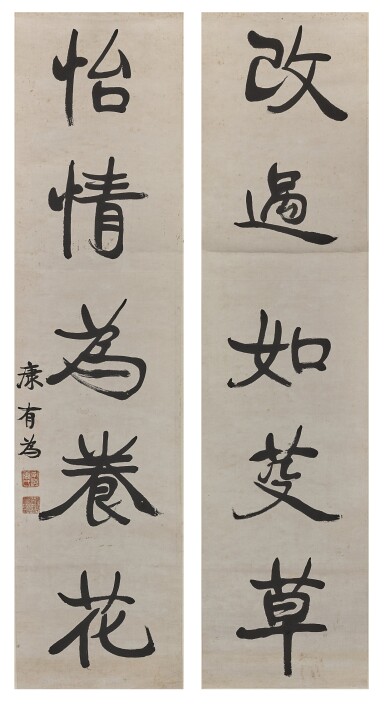 改過如芟草
怡情為養花
康有為